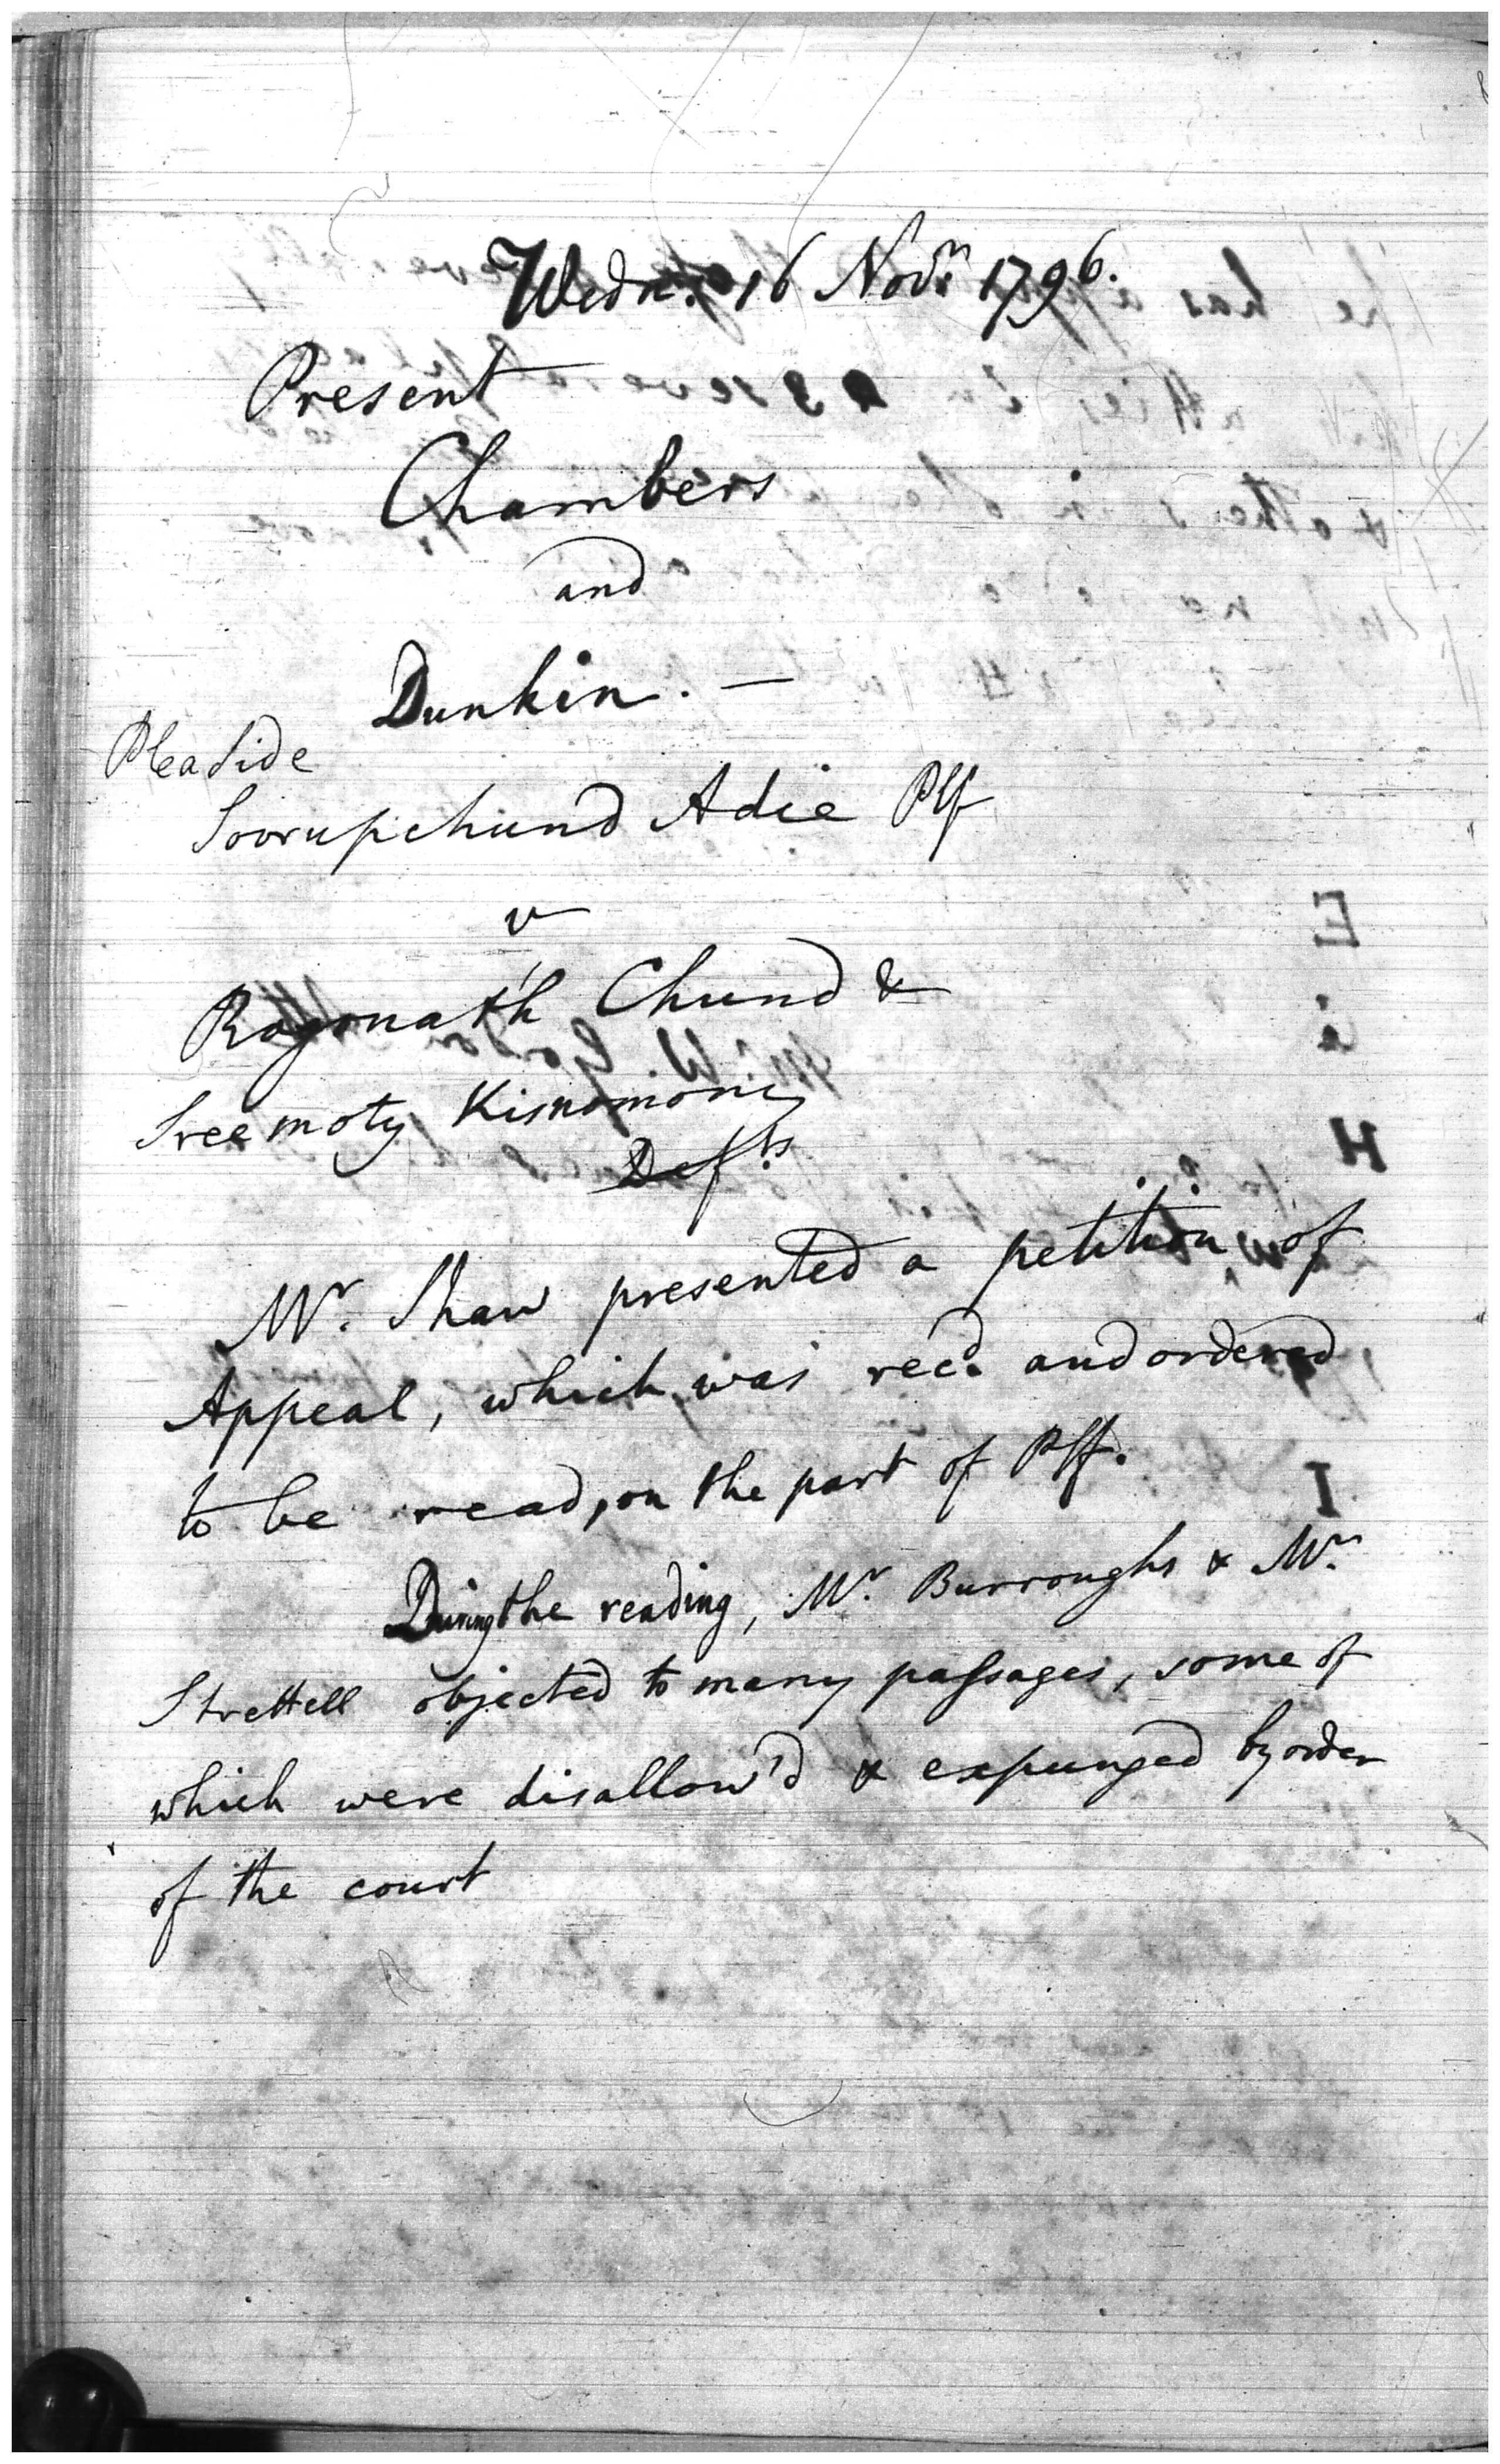 Wedn. 16 Novr. 1796.
Present
Chambers
and
Dunkin. —
Plea Side
Soorupchund Adie Plf
v
Rogonath Chund &
Sreemoty Kisnomoney
Defts.
Mr. Shaw presented a petition of
Appeal, which was recd. and ordered
to be read, on the part of Plff.
During the reading, Mr. Burroughs & Mr.
Strettell objected to many passages, some of
which were disallow'd & expunged by order
of the court